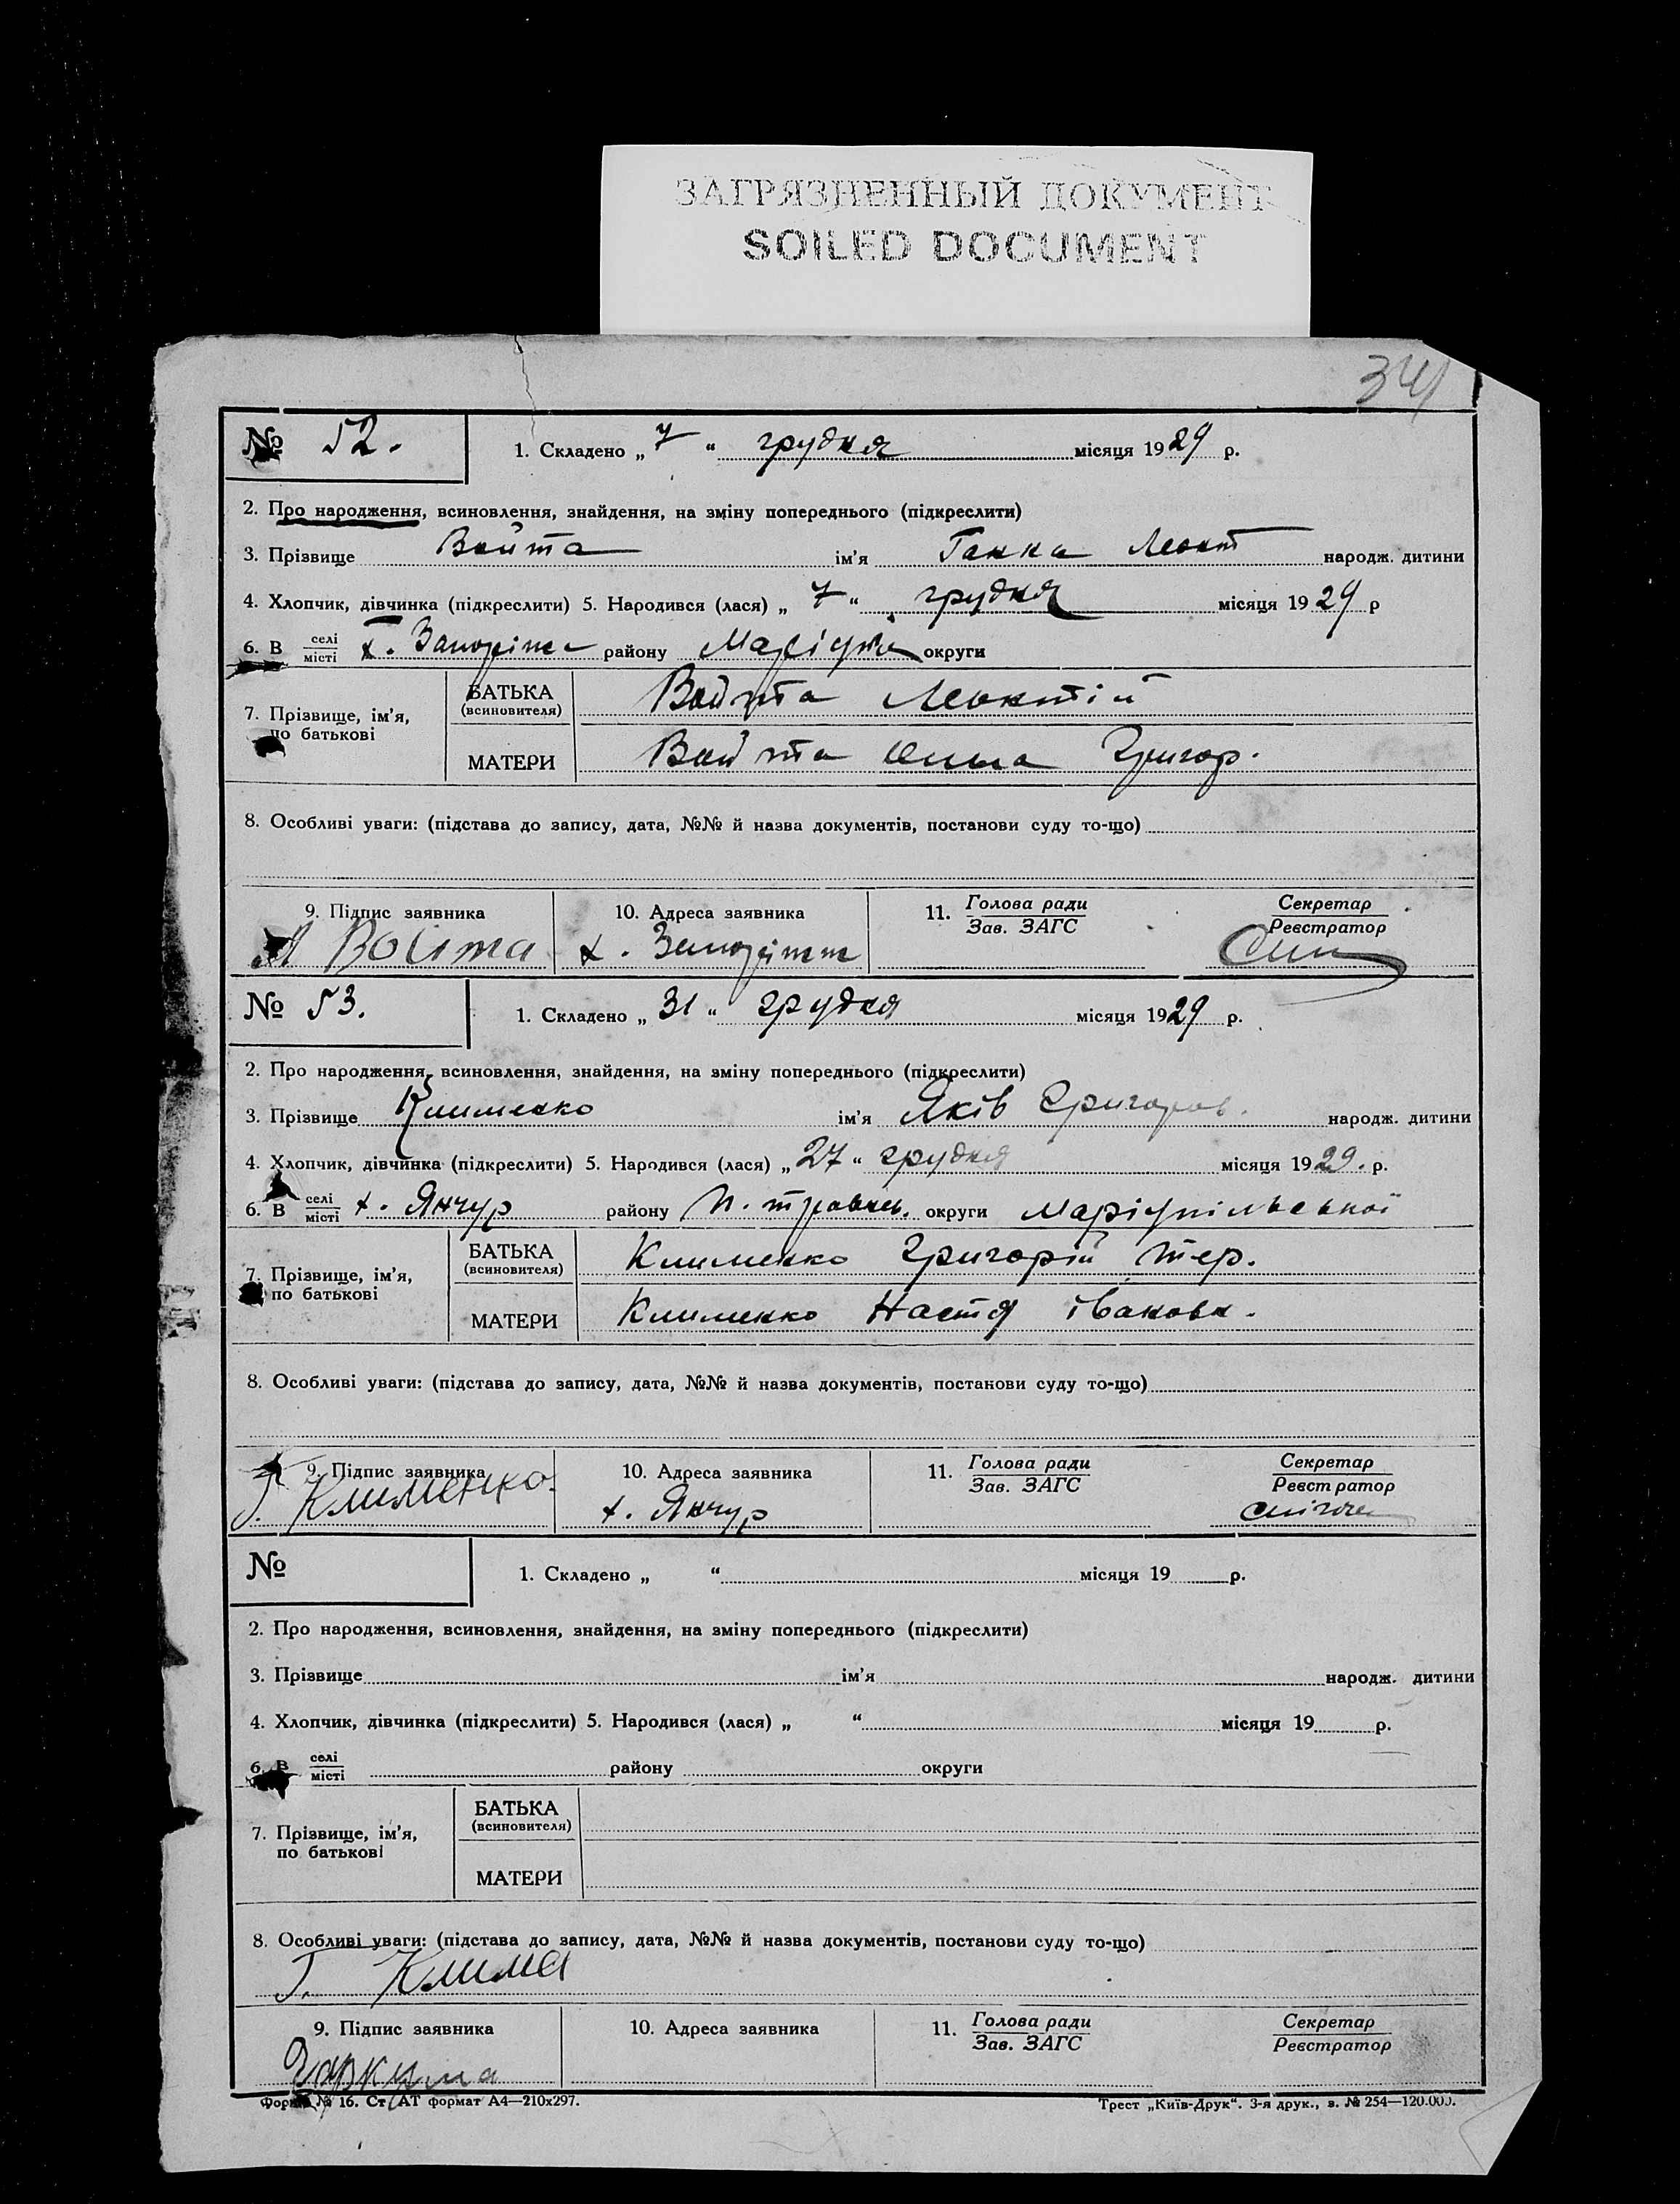 ЗАГРЯЗНЕННЫЙ ДОКУМЕНТ
SOILED DOCUMENT
34
№ 52. 1. Складено „ 7 “ грудня місяця 1929 р.
2. Про народження, всиновлення, знайдення, на зміну попереднього (підкреслити)
3. Прізвище Войта ім'я Ганна Леонт народж. дитини
4. Хлопчик, дівчинка (підкреслити) 5. Народився (лася) „ 7 “ грудня місяця 1929 р
6. В селі/місті х. району округи
7. Прізвище, ім'я, по батькові БАТЬКА (всиновителя) Войта Леонтій
МАТЕРИ Войта Григор.
8. Особливі уваги: (підстава до запису, дата, №№ й назва документів, постанови суду то-що)
9. Підпис заявника 10. Адреса заявника 11. Голова ради Секретар
Зав. ЗАГС Реєстратор
Л Войта х.
№ 53. 1. Складено „ 31 “ грудня місяця 1929 р.
2. Про народження, всиновлення, знайдення, на зміну попереднього (підкреслити)
3. Прізвище Клименко ім'я Яків Григоров. народж. дитини
4. Хлопчик, дівчинка (підкреслити) 5. Народився (лася) „ 27 “ грудня місяця 1929. р.
6. В селі/місті х. Янчур району округи Маріупільської
7. Прізвище, ім'я, по батькові БАТЬКА (всиновителя) Клименко Григорій Тер.
МАТЕРИ Клименко Настя Івановн.
8. Особливі уваги: (підстава до запису, дата, №№ й назва документів, постанови суду то-що)
9. Підпис заявника 10. Адреса заявника 11. Голова ради Секретар
Зав. ЗАГС Реєстратор
Г. Клименко. х. Янчур
№ 1. Складено „ “ місяця 19 р.
2. Про народження, всиновлення, знайдення, на зміну попереднього (підкреслити)
3. Прізвище ім'я народж. дитини
4. Хлопчик, дівчинка (підкреслити) 5. Народився (лася) „ “ місяця 19 р.
6. В селі/місті району округи
7. Прізвище, ім'я, по батькові БАТЬКА (всиновителя)
МАТЕРИ
8. Особливі уваги: (підстава до запису, дата, №№ й назва документів, постанови суду то-що)
Г. Клима
9. Підпис заявника 10. Адреса заявника 11. Голова ради Секретар
Зав. ЗАГС Реєстратор
Форма № 16. Ст АТ формат А4—210х297. Трест „Київ-Друк“. 3-я друк., з. № 254—120.000.